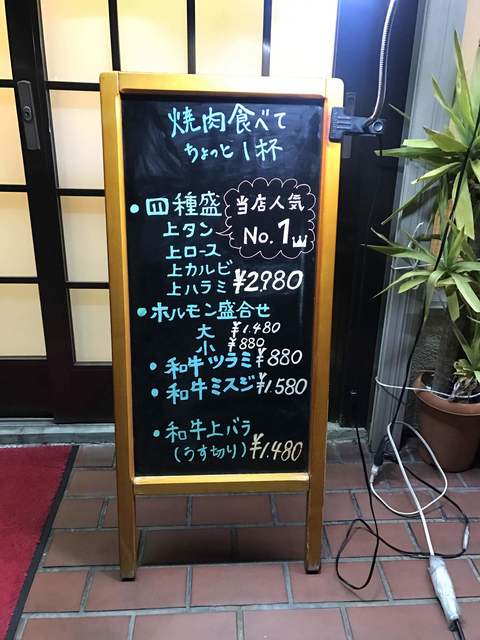 焼肉食べて
ちょっと1杯
・四種盛
当店人気
No.1
上タン
上ロース
上カルビ
上ハラミ ¥2,980
・ホルモン盛合せ
大 ¥1.480
小 ¥880
・和牛ツラミ ¥880
・和牛ミスジ ¥1.580
・和牛上バラ
(うす切り) ¥1.480